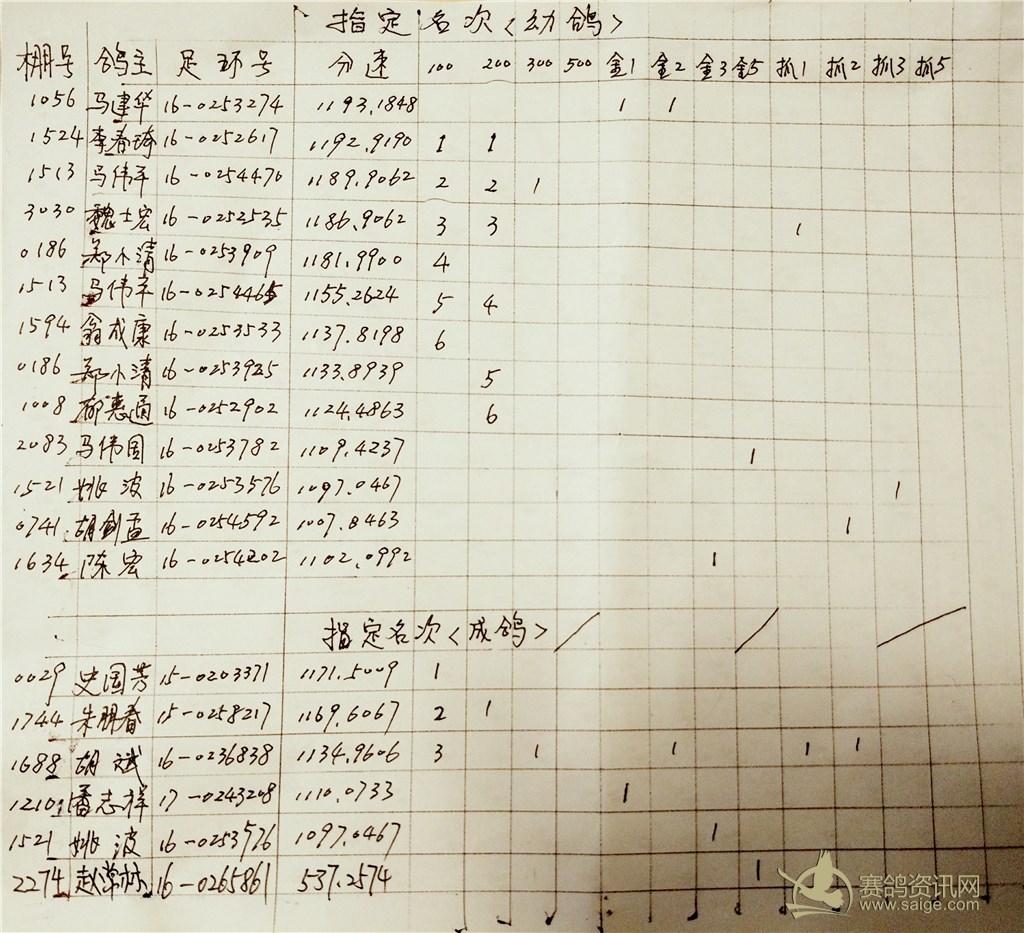 指定名次〈幼鸽〉
棚号 鸽主 足环号 分速 100 200 300 500 金1 金2 金3 金5 抓1 抓2 抓3 抓5
1056 马建华 16-0253274 1193.1848 1 1
1524 李春琦 16-0252617 1192.9190 1 1
1513 马伟平 16-0254470 1189.9062 2 2 1
3030 魏士宏 16-0252535 1186.9062 3 3 1
0186 郑小清 16-0253909 1181.9900 4
1513 马伟平 16-0254465 1155.2624 5 4
1594 翁成康 16-0253533 1137.8198 6
0186 郑小清 16-0253925 1133.8939 5
1008 柳惠通 16-0252902 1124.4863 6
2083 马伟国 16-0253782 1109.4237 1
1521 姚波 16-0253576 1097.0467 1
0741 胡剑孟 16-0254592 1007.8463 1
1634 陈宏 16-0254202 1102.0992 1
指定名次〈成鸽〉
0029 史国芳 15-0203371 1171.5009 1
1744 朱明春 15-0258217 1169.6067 2 1
1688 胡斌 16-0236838 1134.9606 3 1 1 1 1
1210 潘志祥 17-0243208 1110.0733 1
1521 姚波 16-0253576 1097.0467 1
2274 赵学林 16-0265861 537.2574 1
赛鸽资讯网
www.saige.com